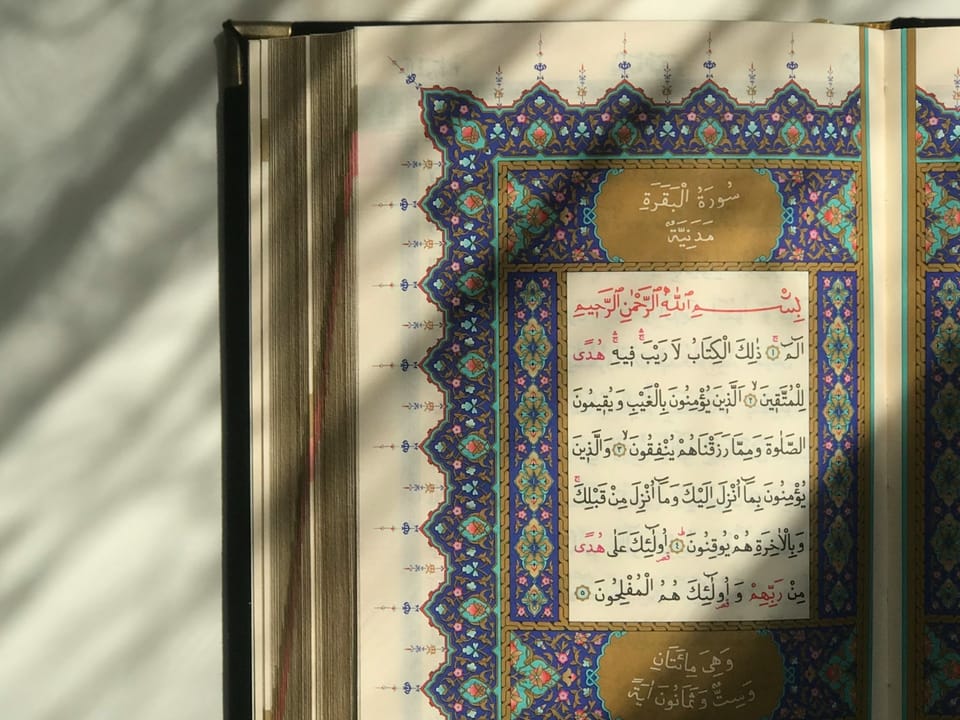 سُورَةُ الْبَقَرَةِ
مَدَنِيَّةٌ
بِسْــــمِ اللّٰهِ الرَّحْمٰنِ الرَّحٖيمِ
الٓمٓ ۚ ﴿١﴾ ذٰلِكَ الْكِتَابُ لَا رَيْبَ ۚۛ فٖيهِ ۚۛ هُدًى
لِلْمُتَّقٖينَ ۙ ﴿٢﴾ اَلَّذٖينَ يُؤْمِنُونَ بِالْغَيْبِ وَيُقٖيمُونَ
الصَّلٰوةَ وَمِمَّا رَزَقْنَاهُمْ يُنْفِقُونَ ۙ ﴿٣﴾ وَالَّذٖينَ
يُؤْمِنُونَ بِمَٓا اُنْزِلَ اِلَيْكَ وَمَٓا اُنْزِلَ مِنْ قَبْلِكَ ۚ
وَبِالْاٰخِرَةِ هُمْ يُوقِنُونَ ۜ ﴿٤﴾ اُو۬لٰٓئِكَ عَلٰى هُدًى
مِنْ رَبِّهِمْ وَاُو۬لٰٓئِكَ هُمُ الْمُفْلِحُونَ ﴿٥﴾
وَهِيَ مِائَتَانِ
وَسِتٌّ وَثَمَانُونَ اٰيَةً